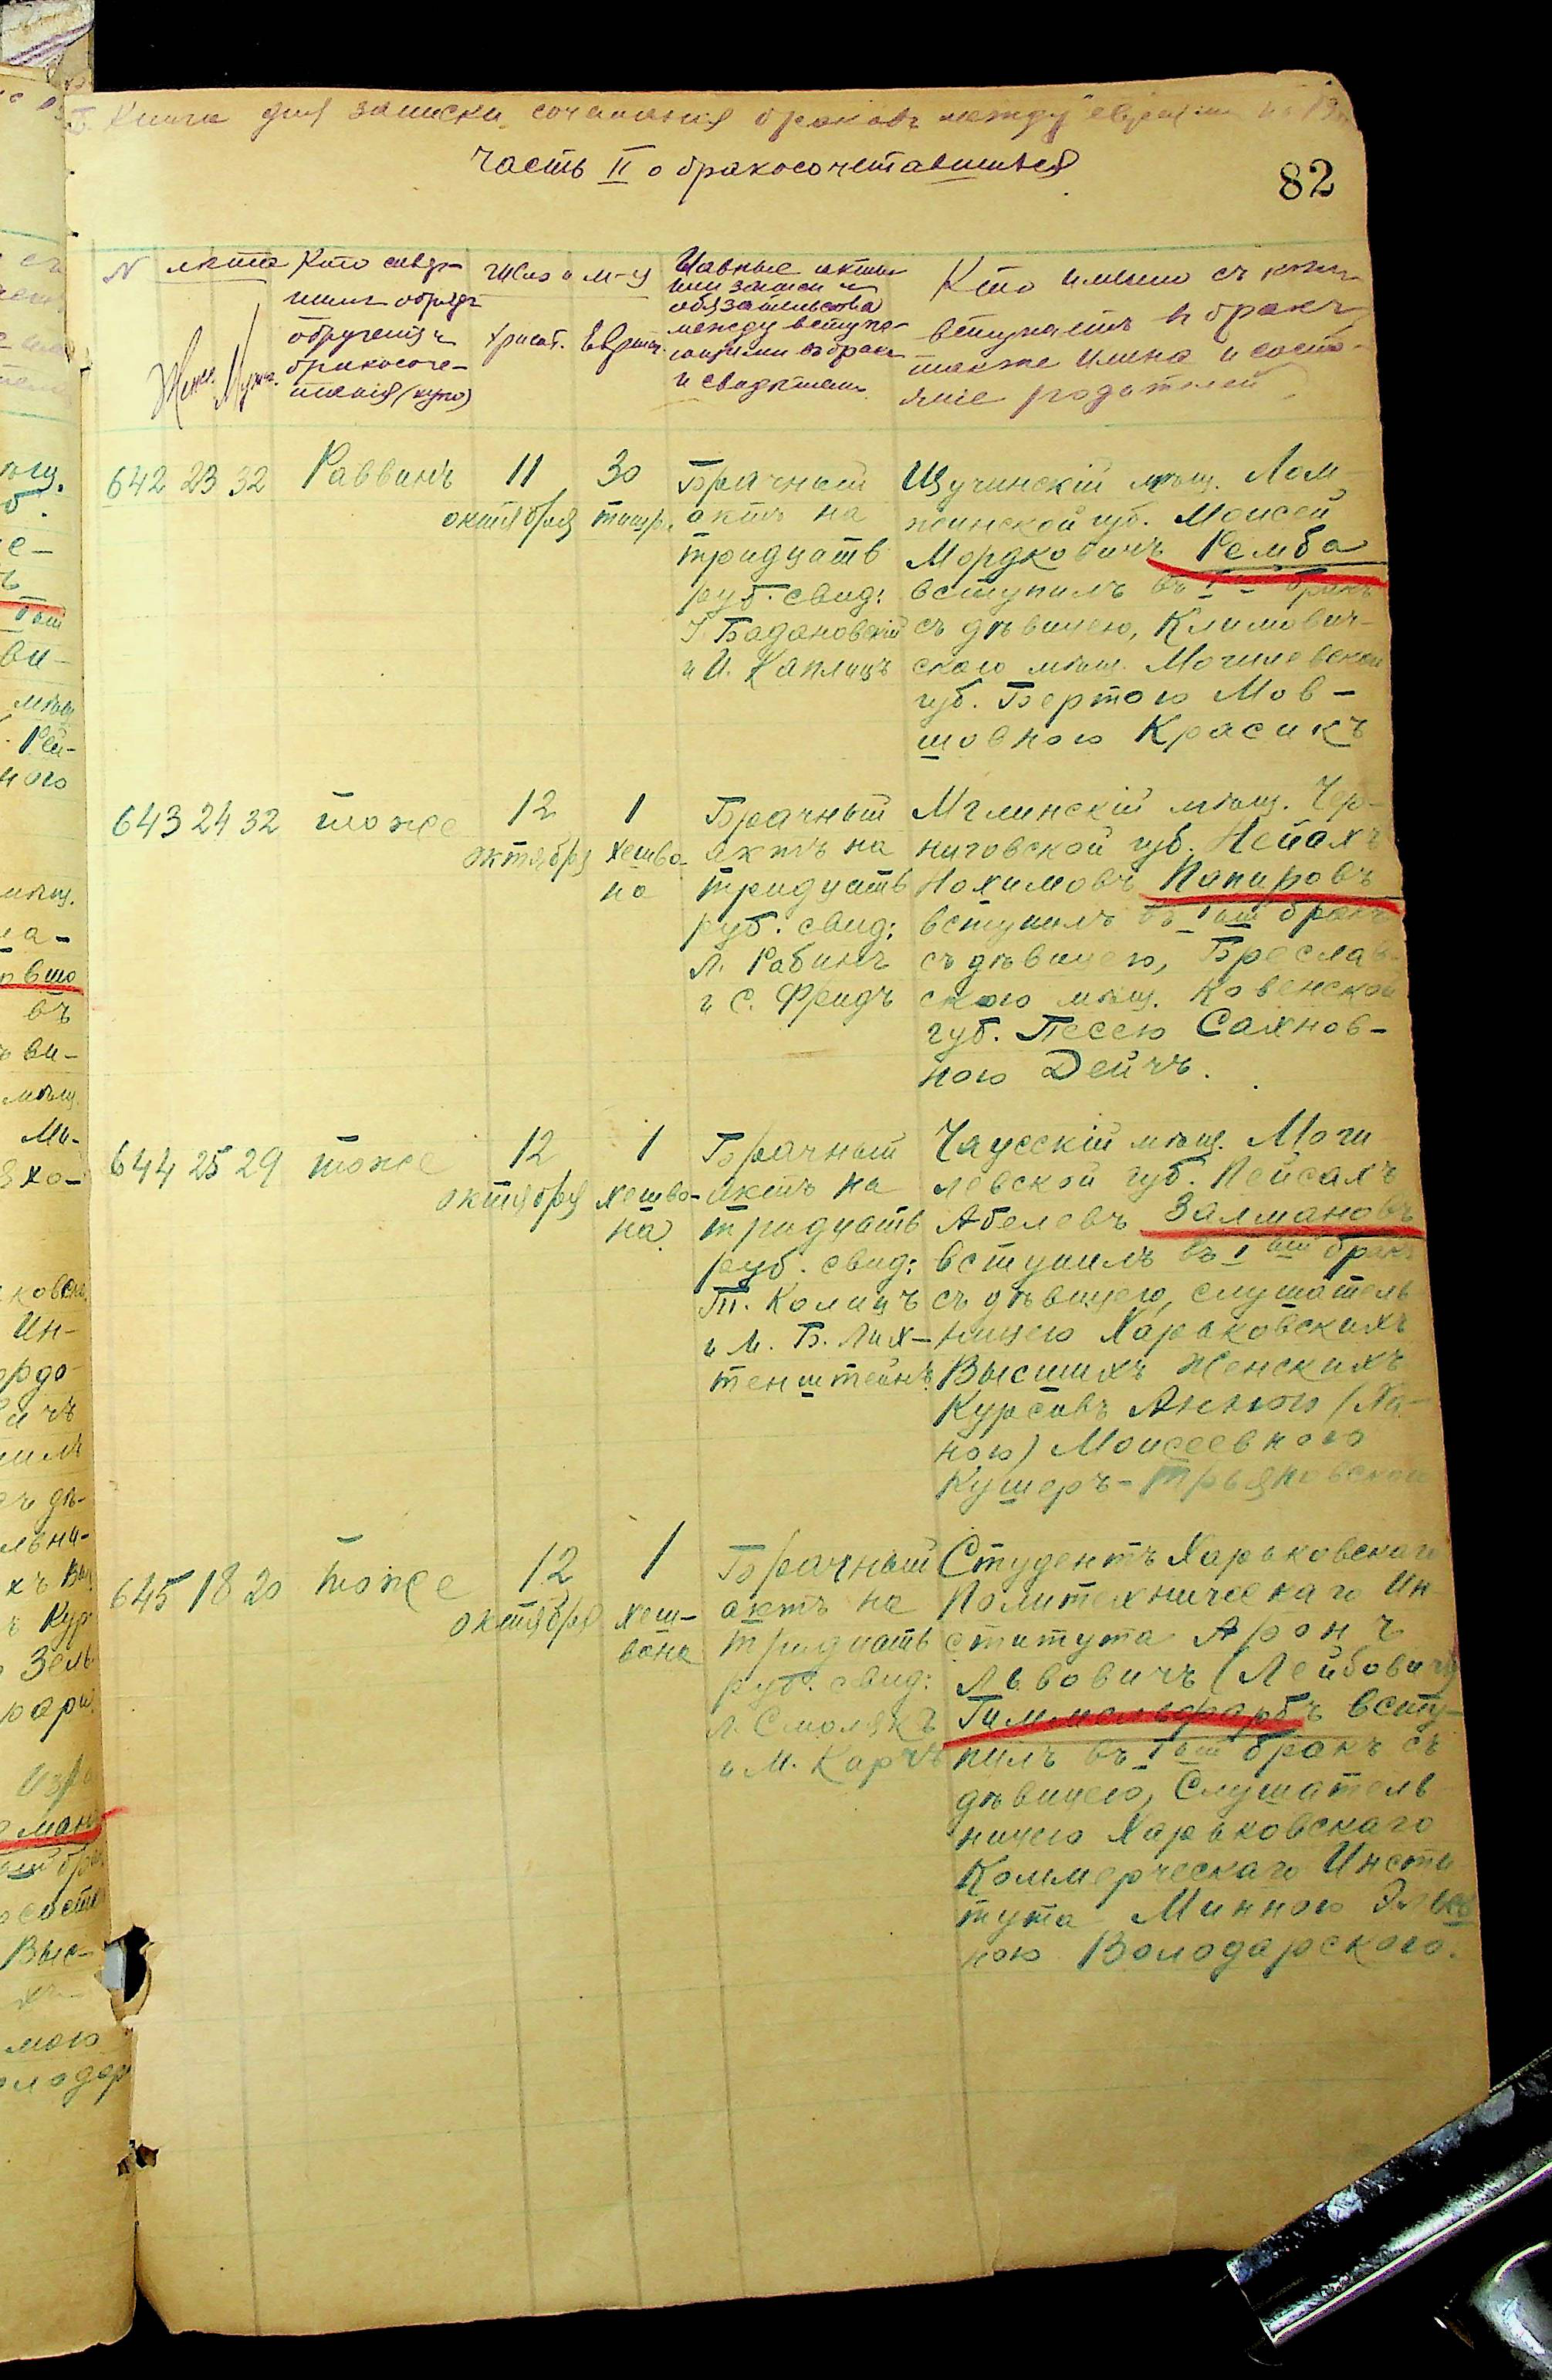 Книга для записки сочетания браковъ между евреями на 19
Часть II о бракосочетавшихся
82
№ лѣта Кто совер-
шилъ обрядъ
обрученія и
бракосоче-
танія (хупо)
Женск. Мужск.
Число и м-ц
Христ. Еврейск.
Главные акты
или записи и
обязательства
между вступа-
ющими въ бракъ
и свидѣтели
Кто именно съ кѣмъ
вступаетъ въ бракъ,
также имена и состо-
яніе родителей
642 23 32 Раввинъ 11 октября 30 тишр.
Брачный
актъ на
тридцать
руб. свид:
I. Бадановскій
и И. Капланъ
Щучинскій мѣщ. Лом
жинской губ. Моисей
Мордковичъ Ремба
вступилъ въ I-й бракъ
съ дѣвицею, Климович-
скою мѣщ. Могилевской
губ. Бертою Мов-
шовною Красикъ
643 24 32 тоже 12 октября 1 хешва-
на
Брачный
актъ на
тридцать
руб. свид:
Л. Рабинъ
и С. Фридъ
Мглинскій мѣщ. Чер-
ниговской губ. Нейахъ
Нохимовъ Папировъ
вступилъ въ I ый бракъ
съ дѣвицею, Бреслав-
скою мѣщ. Ковенской
губ. Песею Сахнов-
ною Дейчъ.
644 25 29 тоже 12 октября 1 хешва-
на
Брачный
актъ на
тридцать
руб. свид:
Т. Колицъ
и М. Б. Лих-
тенштейнъ
Чаусскій мѣщ. Моги
левской губ. Пейсахъ
Абелевъ Залмановъ
вступилъ въ I ый бракъ
съ дѣвицею, слушатель
ницею Харьковскихъ
Высшихъ Женскихъ
Курсовъ Анною (Ха-
ною) Моисеевною
Кушеръ-Трьяновской
645 18 20 тоже 12 октября 1 хеш-
вана
Брачный
актъ на
тридцать
руб. свид:
Л. Смолякъ
и М. Карчъ
Студентъ Харьковскаго
Политехническаго Ин
ститута Аронъ
Львовичъ (Лейбовичъ)
Гиммельфарбъ всту-
пилъ въ I ый бракъ съ
дѣвицею, Слушатель
ницею Харьковскаго
Коммерческаго Инсти
тута Минною Эльк
ною Володарского.